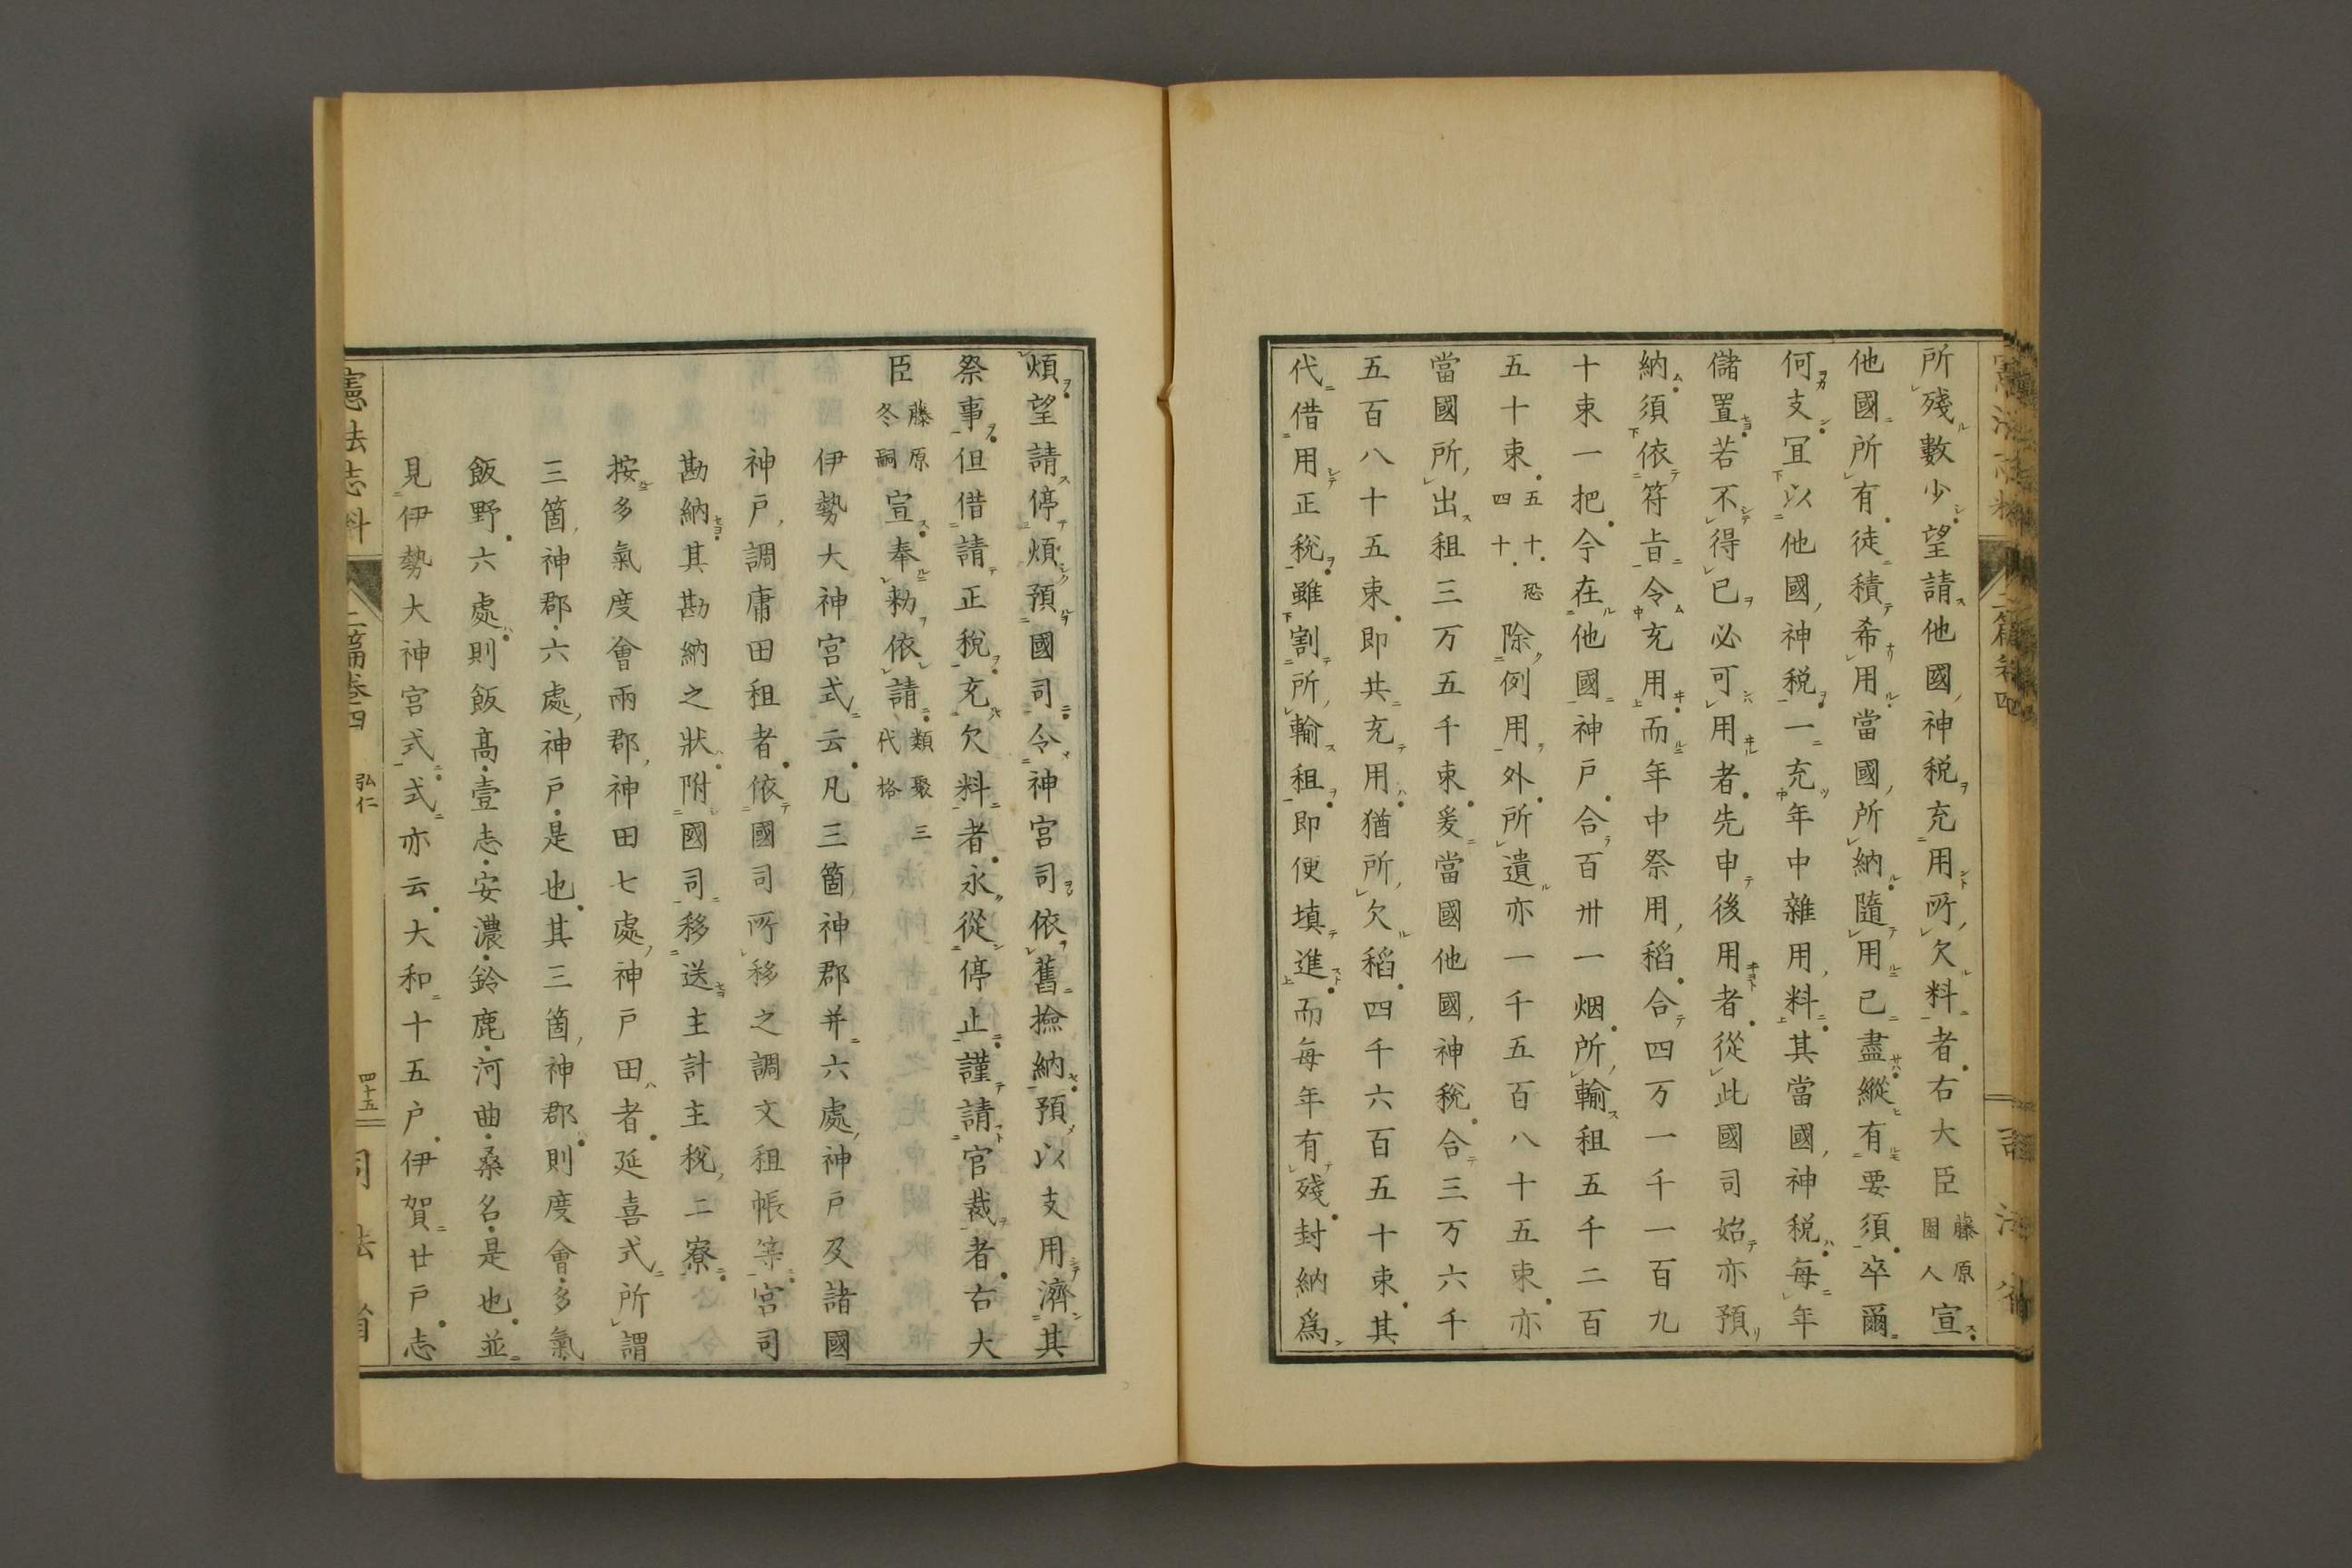 所殘數少望請他國神税充用所欠料者右大臣藤原園人宣
他國所有徒積希用當國所納隨用已盡縱有要須卒爾
何支冝以他國神税一充年中雜用料其當國神税毎年
儲置若不得已必可用者先申後用者從此國司始亦預
納須依符旨令充用而年中祭用稻合四万一千一百九
十束一把今在他國神戸合百卅一烟所輸租五千二百
五十束五十恐四十除例用外所遺亦一千五百八十五束亦
當國所出租三万五千束爰當國他國神税合三万六千
五百八十五束即共充用猶所欠稻四千六百五十束其
代借用正税雖割所輸租即便填進而毎年有殘封納爲
煩望請停煩預國司令神宮司依舊撿納預以支用濟其
祭事但借請正税充欠料者永從停止謹請官裁者右大
臣藤原冬嗣宣奉勅依請類聚三代格
伊勢大神宮式云凡三箇神郡并六處神戸及諸國
神戸調庸田租者依國司所移之調文租帳等宮司
勘納其勘納之狀附國司移送主計主税二寮
按多氣度會兩郡神田七處神戸田者延喜式所謂
三箇神郡六處神戸是也其三箇神郡則度會多氣
飯野六處則飯高壹志安濃鈴鹿河曲桑名是也並
見伊勢大神宮式式亦云大和十五戸伊賀廿戸志
憲法志料 二篇卷四 弘仁 四十五 司法省